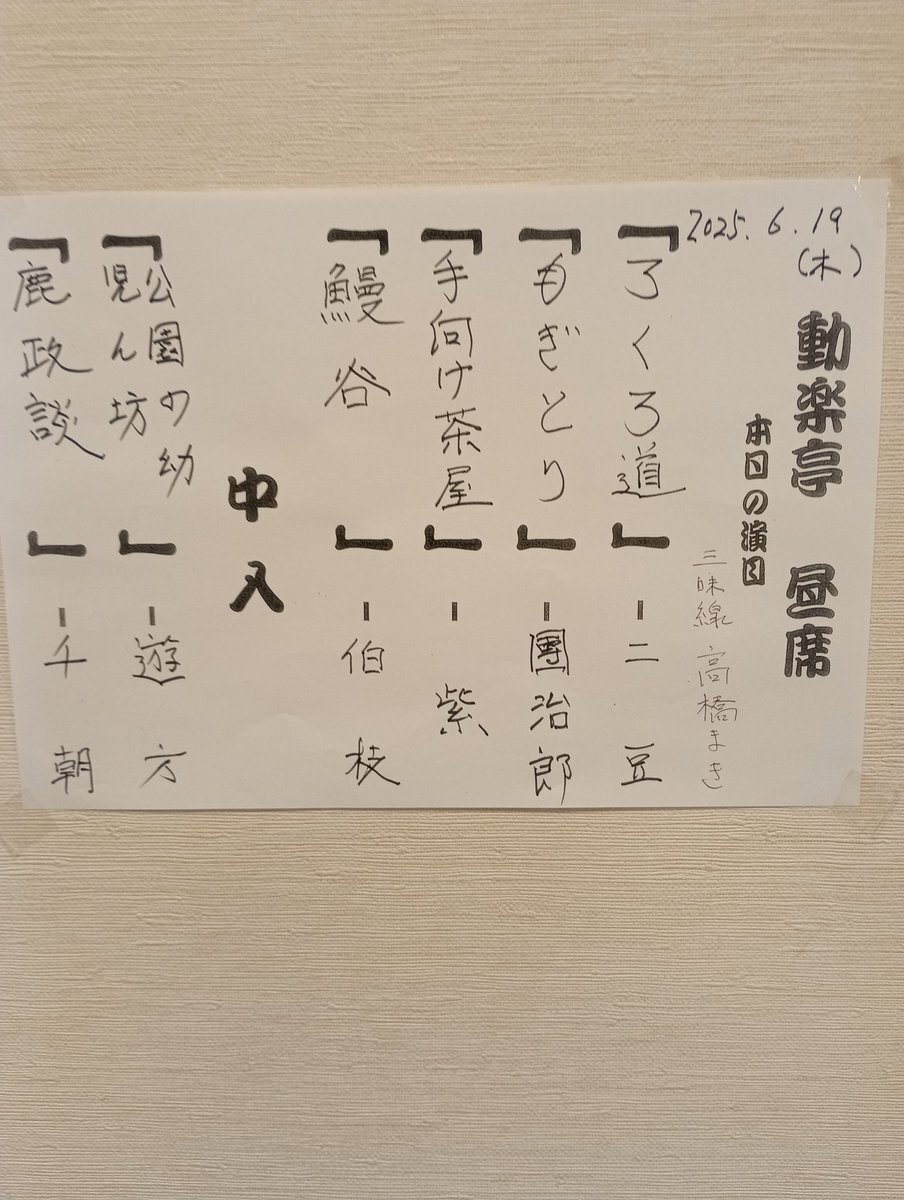 2025.6.19
(木)
動楽亭 昼席
本日の演目
三味線 高橋まき
「ろくろ道」-二豆
「もぎとり」-團治郎
「手向け茶屋」-紫
「鰻谷」-伯枝
中入
「公園の幼
児ん坊」-遊方
「鹿政談」-千朝